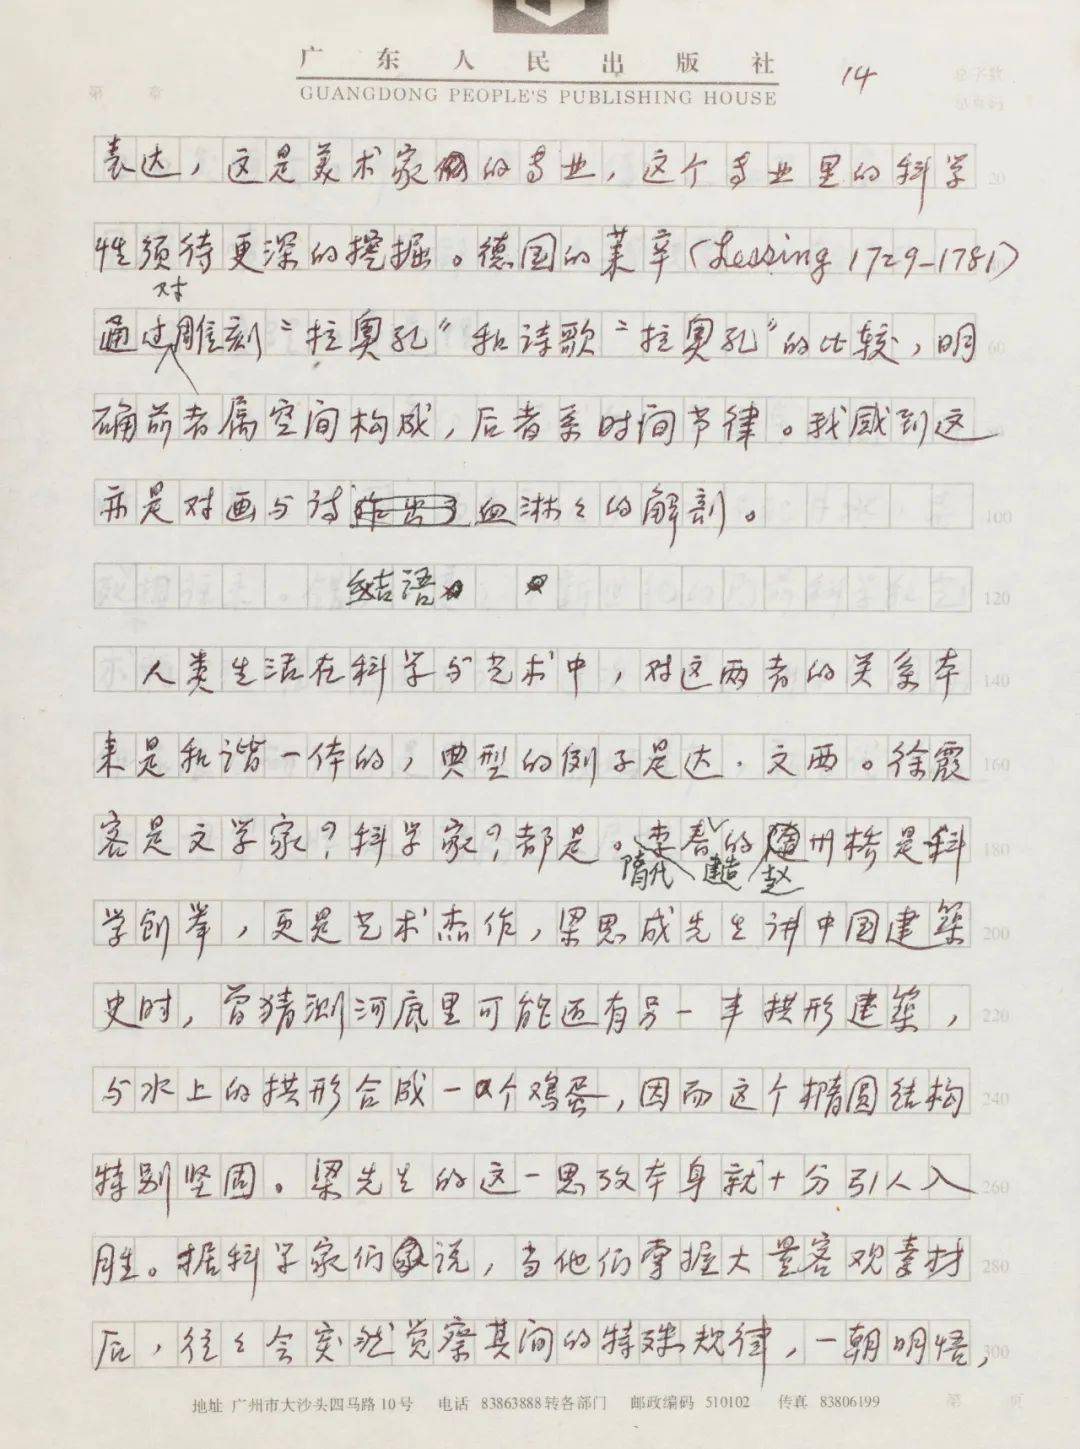 广东人民出版社
GUANGDONG PEOPLE'S PUBLISHING HOUSE
14
第 章
总字数
总页码
表达，这是美术家的专业，这个专业里的科学
20
性须待更深的挖掘。德国的莱辛（Lessing 1729-1781）
通过对雕刻“拉奥孔”和诗歌“拉奥孔”的比较，明
60
确前者属空间构成，后者系时间节律。我感到这
亦是对画与诗血淋々的解剖。
100
结语
120
人类生活在科学与艺术中，对这两者的关系本
140
来是和谐一体的，典型的例子是达·文西。徐霞
160
客是文学家？科学家？都是。隋代李春建造的赵州桥是科
180
学创举，更是艺术杰作，梁思成先生讲中国建筑
200
史时，曾猜测河底里可能还有另一半拱形建筑，
220
与水上的拱形合成一个鸡蛋，因而这个椭圆结构
240
特别坚固。梁先生的这一思考本身就十分引人入
260
胜。据科学家们说，当他们掌握大量客观素材
280
后，往々会突然觉察其间的特殊规律，一朝明悟，
300
地址 广州市大沙头四马路10号 电话 83863888转各部门 邮政编码 510102 传真 83806199
第 页